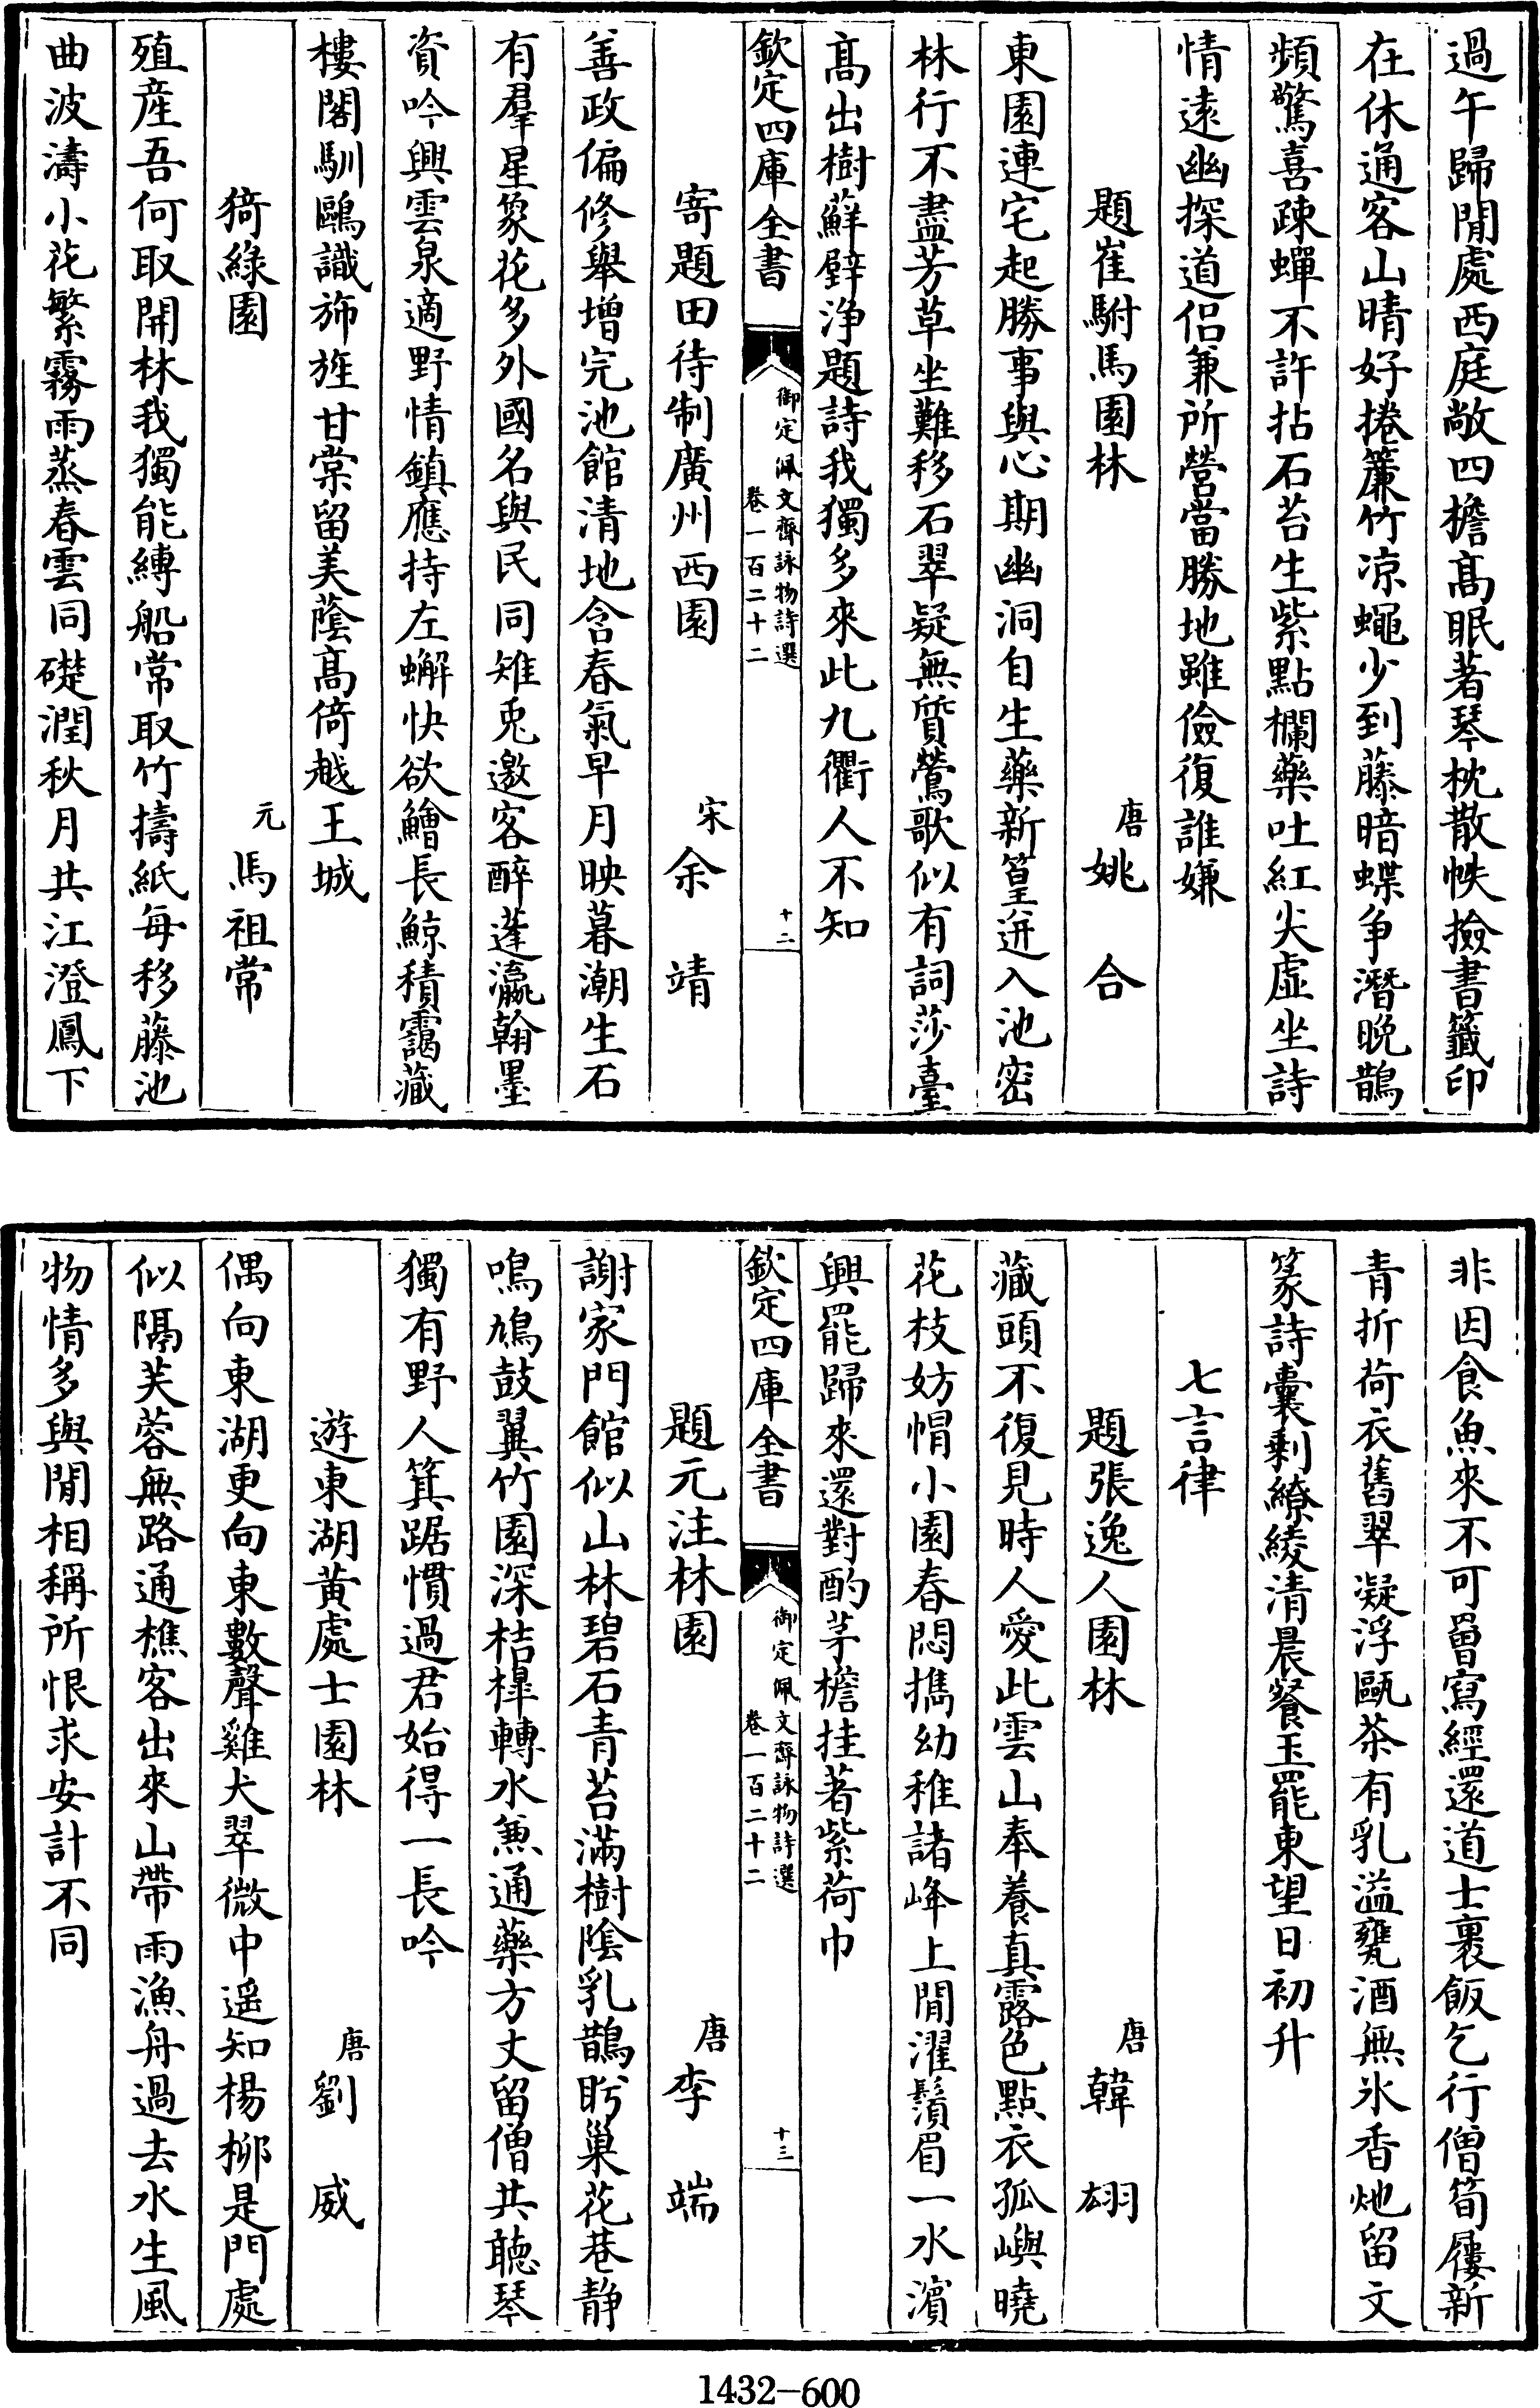 過午歸閒處西庭敞四檐髙眠著琴枕散帙撿書籤印
在休通客山晴好捲簾竹凉蠅少到藤暗蝶争潛晚鵲
頻驚喜疎蟬不許拈石苔生紫點欄藥吐紅尖虛坐詩
情遠幽探道侣兼所營當勝地雖儉復誰嫌
題崔駙馬園林　唐姚合
東園連宅起勝事與心期幽洞自生藥新篁迸入池密
林行不盡芳草坐難移石翠疑無質鶯歌似有詞莎臺
髙出樹蘚壁浄題詩我獨多來此九衢人不知
欽定四庫全書　御定佩文齋詠物詩選　卷一百二十二　十二
寄題田待制廣州西園　宋余靖
善政偏修舉增完池館清地含春氣早月映暮潮生石
有羣星象花多外國名與民同雉兎邀客醉蓬瀛翰墨
資吟興雲泉適野情鎮應持左蠏快欲鱠長鯨積靄藏
樓閣馴鷗識斾旌甘棠留美蔭髙倚越王城
猗綠園　元馬祖常
殖産吾何取開林我獨能縳船常取竹擣紙每移藤池
曲波濤小花繁霧雨蒸春雲同礎潤秋月共江澄鳳下
非因食魚來不可罾寫經還道士裹飯乞行僧筍屨新
青折荷衣舊翠凝浮甌茶有乳溢甕酒無氷香灺留文
篆詩囊剩繚綾清晨餐玉罷東望日初升
七言律
題張逸人園林　唐韓翃
藏頭不復見時人愛此雲山奉養真露色點衣孤嶼曉
花枝妨帽小園春悶攜幼稚諸峰上閒濯鬚眉一水濱
興罷歸來還對酌茅檐挂著紫荷巾
欽定四庫全書　御定佩文齋詠物詩選　卷一百二十二　十三
題元注林園　唐李端
謝家門館似山林碧石青苔滿樹隂乳鵲眄巢花巷静
鳴鳩鼓翼竹園深桔槹轉水兼通藥方丈留僧共聽琴
獨有野人箕踞慣過君始得一長吟
遊東湖黃處士園林　唐劉威
偶向東湖更向東數聲雞犬翠微中遥知楊柳是門處
似隔芙蓉無路通樵客出來山帶雨漁舟過去水生風
物情多與閒相稱所恨求安計不同
1432-600